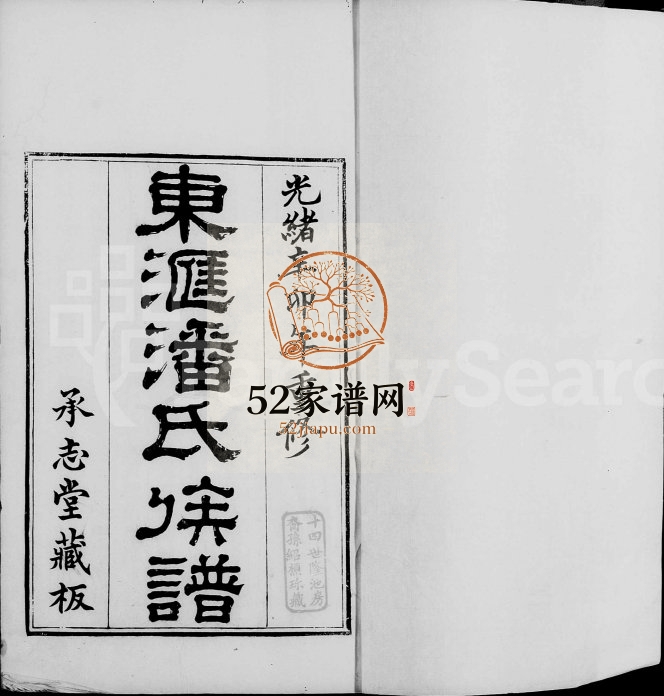 光緒辛卯年重修
東滙潘氏族譜
承志堂藏板
十四世隆池房
裔孫紹楨珍藏
52家谱网
52jiapu.com
FamilySearch